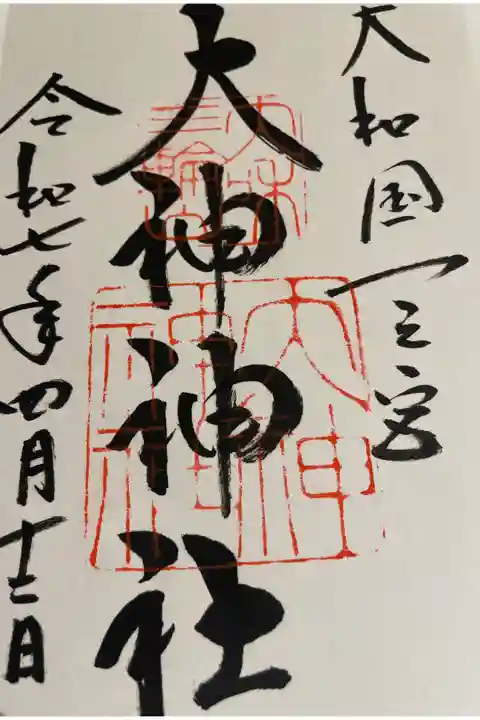 大和国一之宮
大神神社
令和七年四月十三日
大神神社